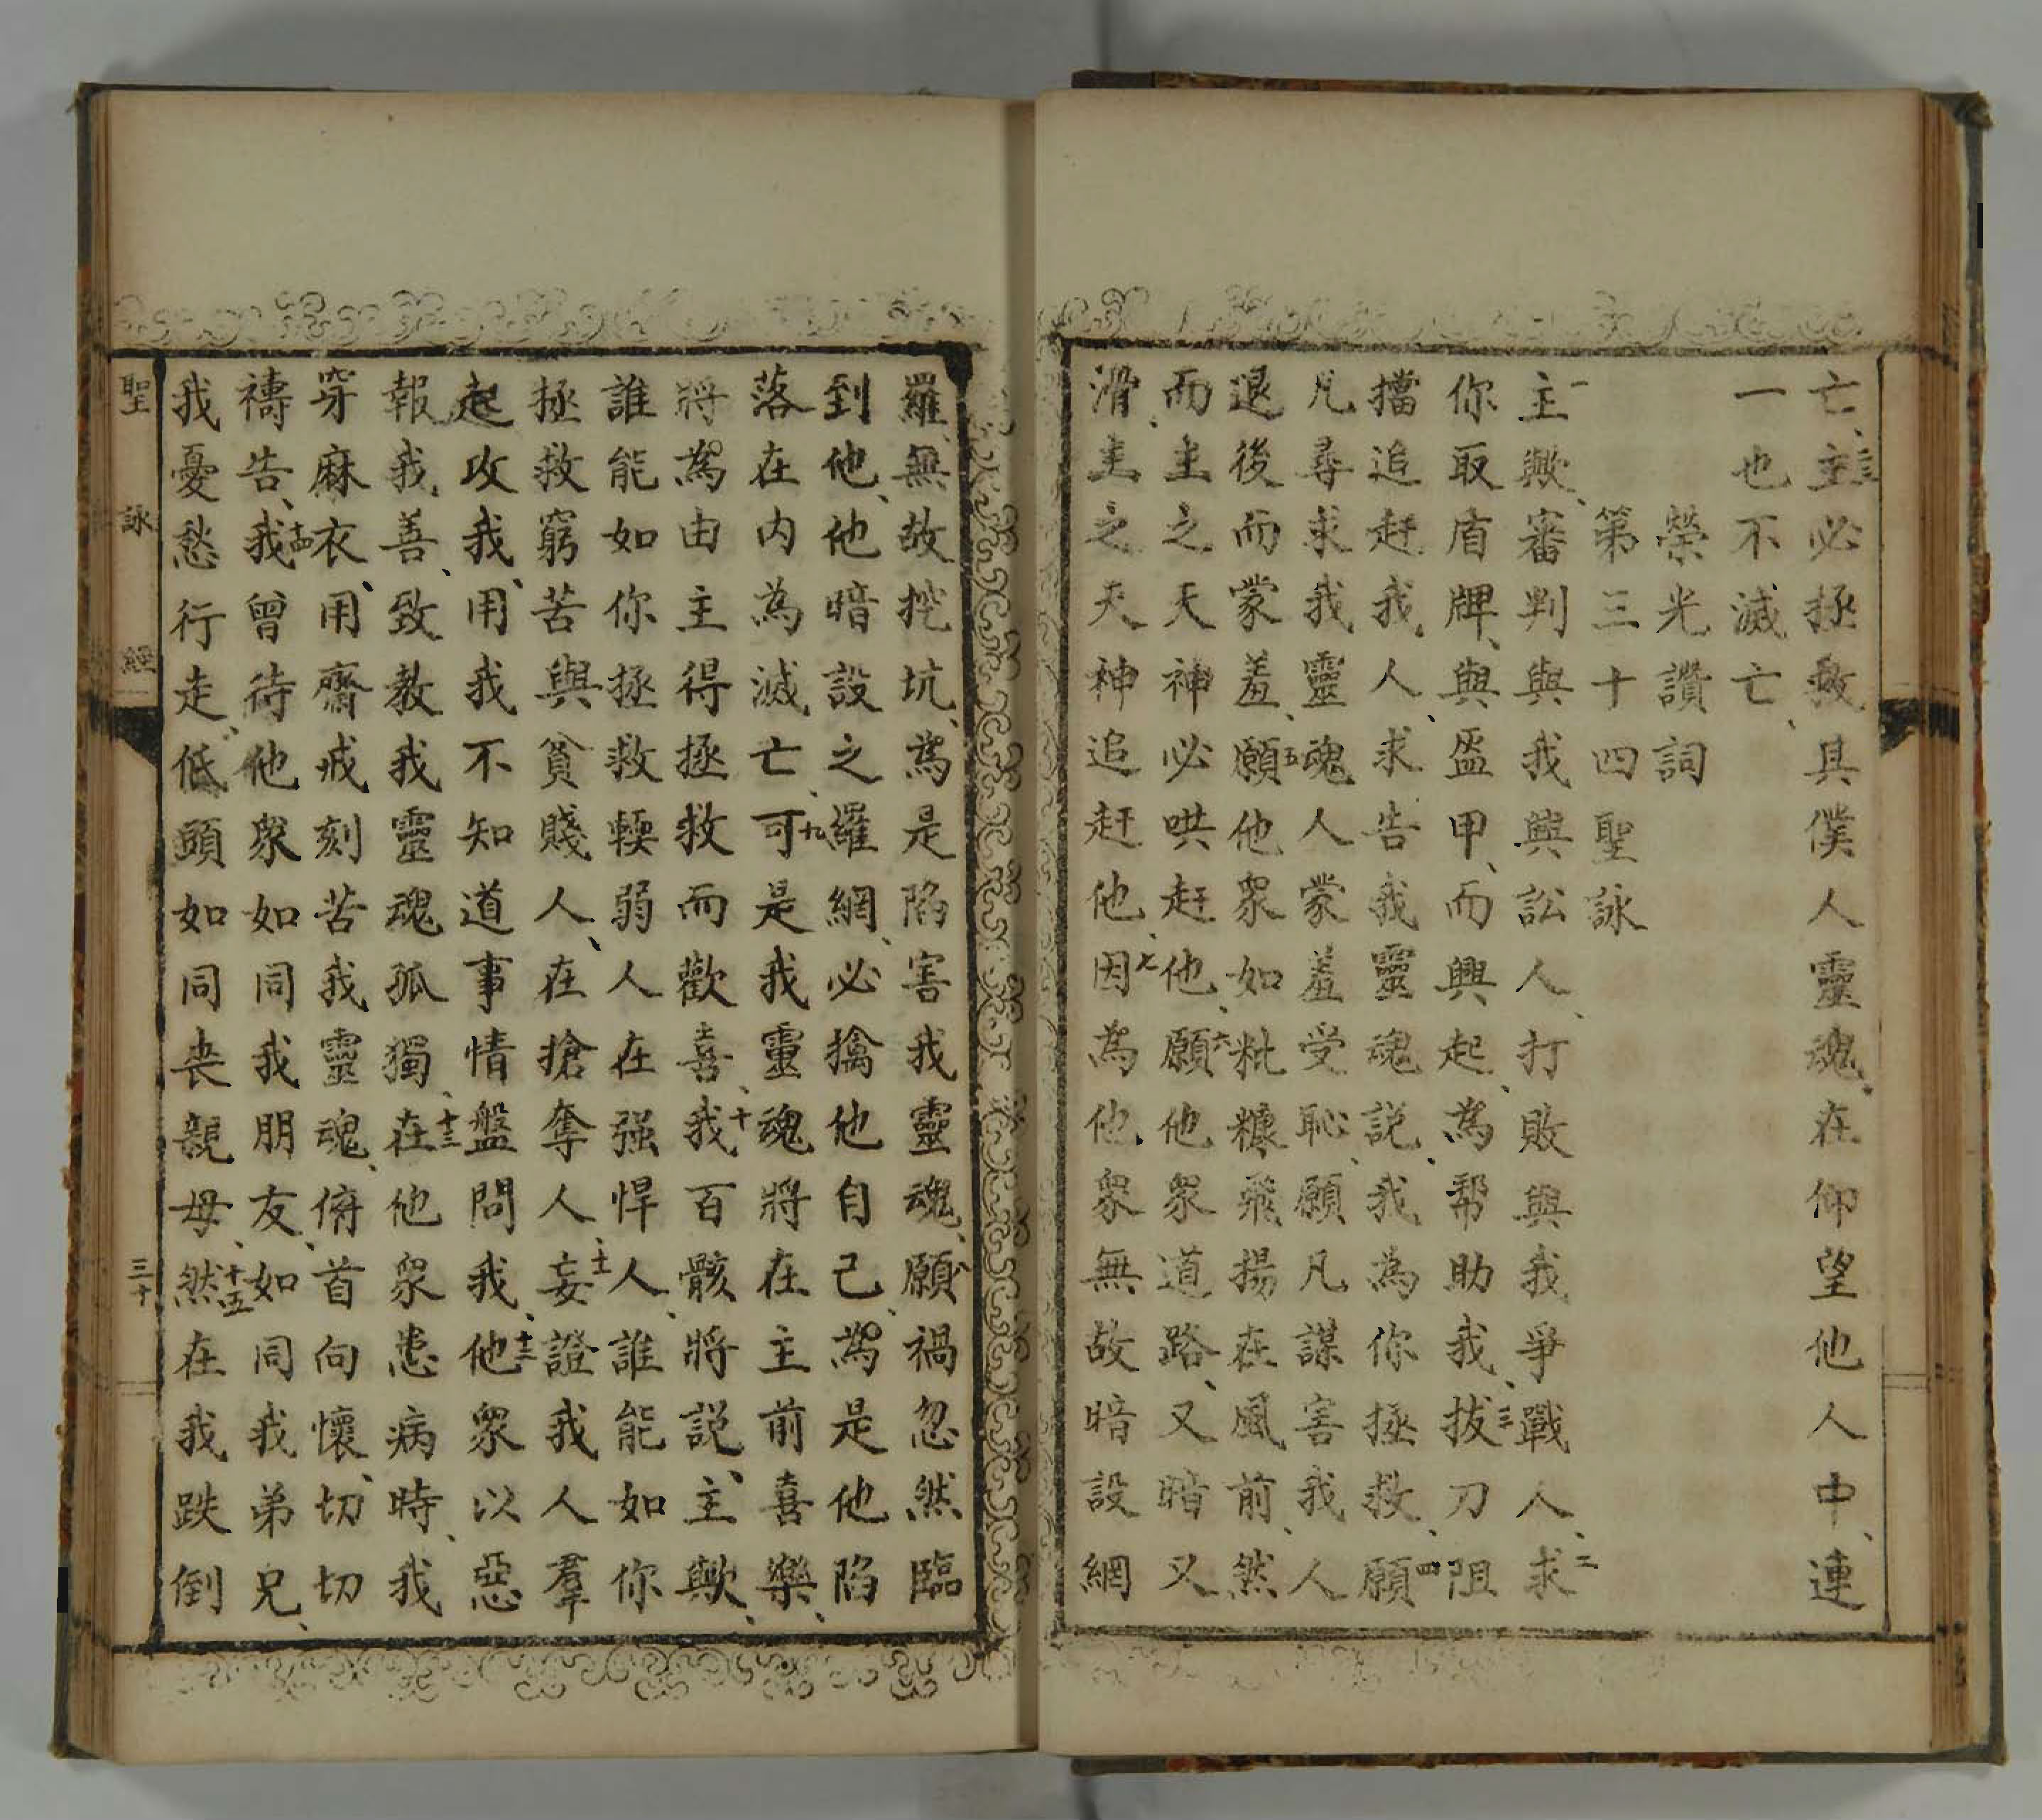 亡、二三主必拯救其僕人靈魂、在仰望他人中、連
一也不滅亡、
榮光讚詞
第三十四聖詠
一主歟、審判與我興訟人、打敗與我爭戰人、二求
你取盾牌、與盔甲、而興起、為帮助我、三拔刀阻
擋追赶我人、求告我靈魂説、我為你拯救、四願
凡尋求我靈魂人蒙羞受恥、願凡謀害我人
退後而蒙羞、五願他衆如粃糠飛揚在風前、然
而主之天神必哄赶他、六願他衆道路、又暗又
滑、主之天神追赶他、七因為他衆無故暗設網
羅、無故挖坑、為是陷害我靈魂、八願禍忽然臨
到他、他暗設之羅網、必擒他自己、為是他陷
落在内為滅亡、九可是我靈魂將在主前喜樂、
將為由主得拯救而歡喜、十我百骸將説、主歟、
誰能如你拯救輭弱人在强悍人、誰能如你
拯救窮苦與貧賤人、在搶奪人、十一妄證我人羣
起攻我、用我不知道事情盤問我、十二他衆以惡
報我善、致教我靈魂孤獨、十三在他衆患病時、我
穿麻衣、用齋戒刻苦我靈魂、俯首向懷、切切
禱告、十四我曾待他衆如同我朋友、如同我弟兄、
我憂愁行走、低頭如同丧親母、十五然在我跌倒
聖詠經
三十